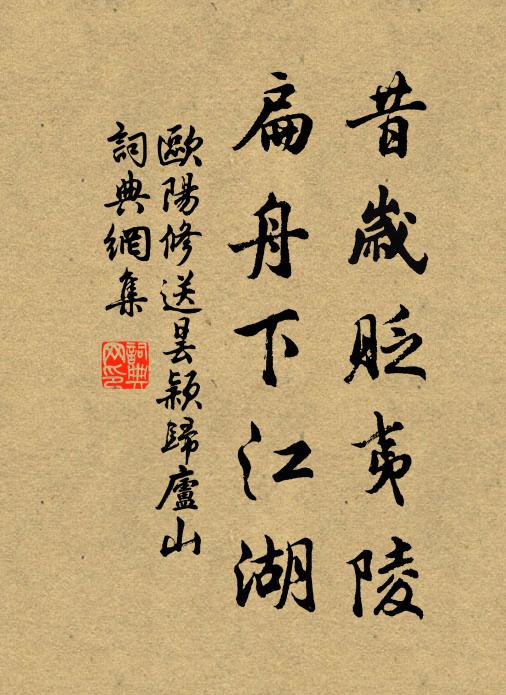 昔歲貶夷陵
扁舟下江湖
歐陽修送曇穎歸廬山
詞典網集
詞典
网印